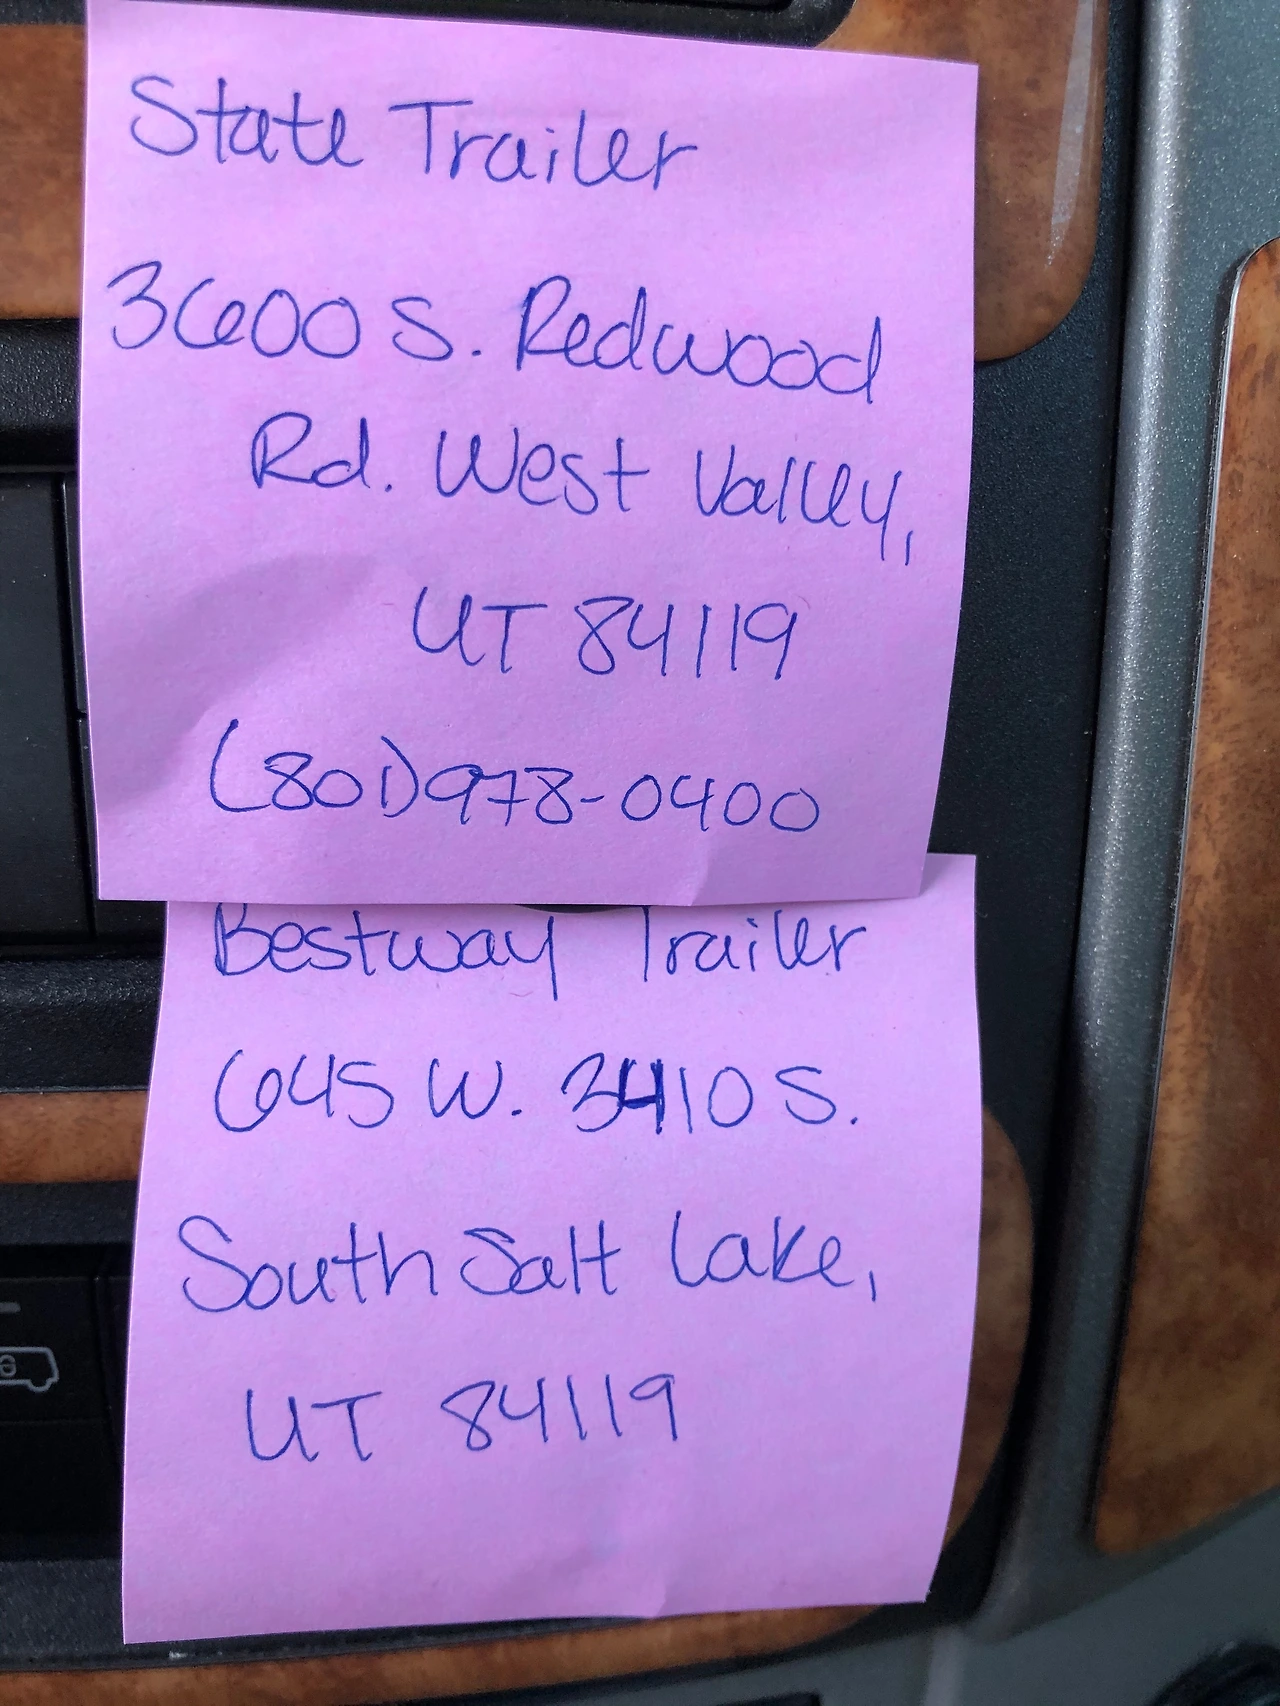 State Trailer
3600 S. Redwood
Rd. West Valley,
UT 84119
(801)978-0400
Bestway Trailer
645 W. 3410 S.
South Salt Lake,
UT 84119